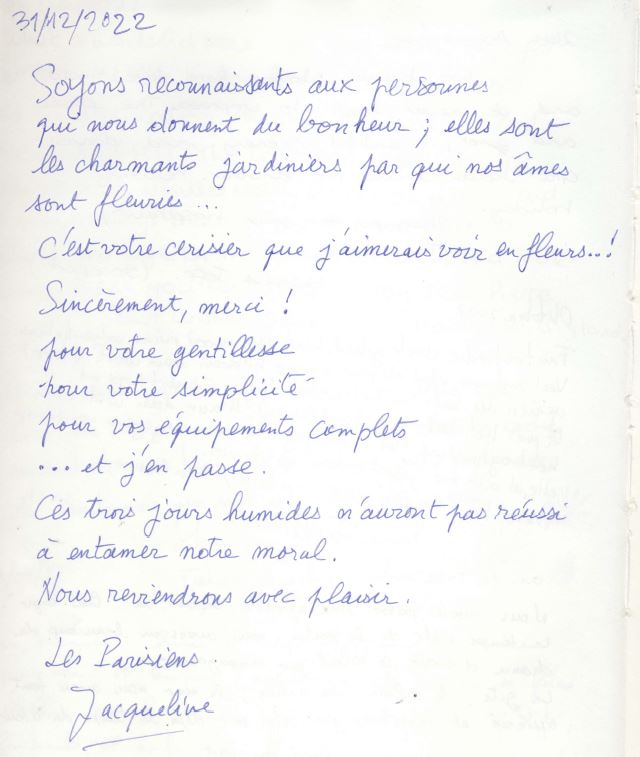 31/12/2022
Soyons reconnaissants aux personnes
qui nous donnent du bonheur ; elles sont
les charmants jardiniers par qui nos âmes
sont fleuries ...
C'est votre cerisier que j'aimerais voir en fleurs..!
Sincèrement, merci !
pour votre gentillesse
pour votre simplicité
pour vos équipements complets
... et j'en passe.
Ces trois jours humides n'auront pas réussi
à entamer notre moral.
Nous reviendrons avec plaisir.
Les Parisiens
Jacqueline